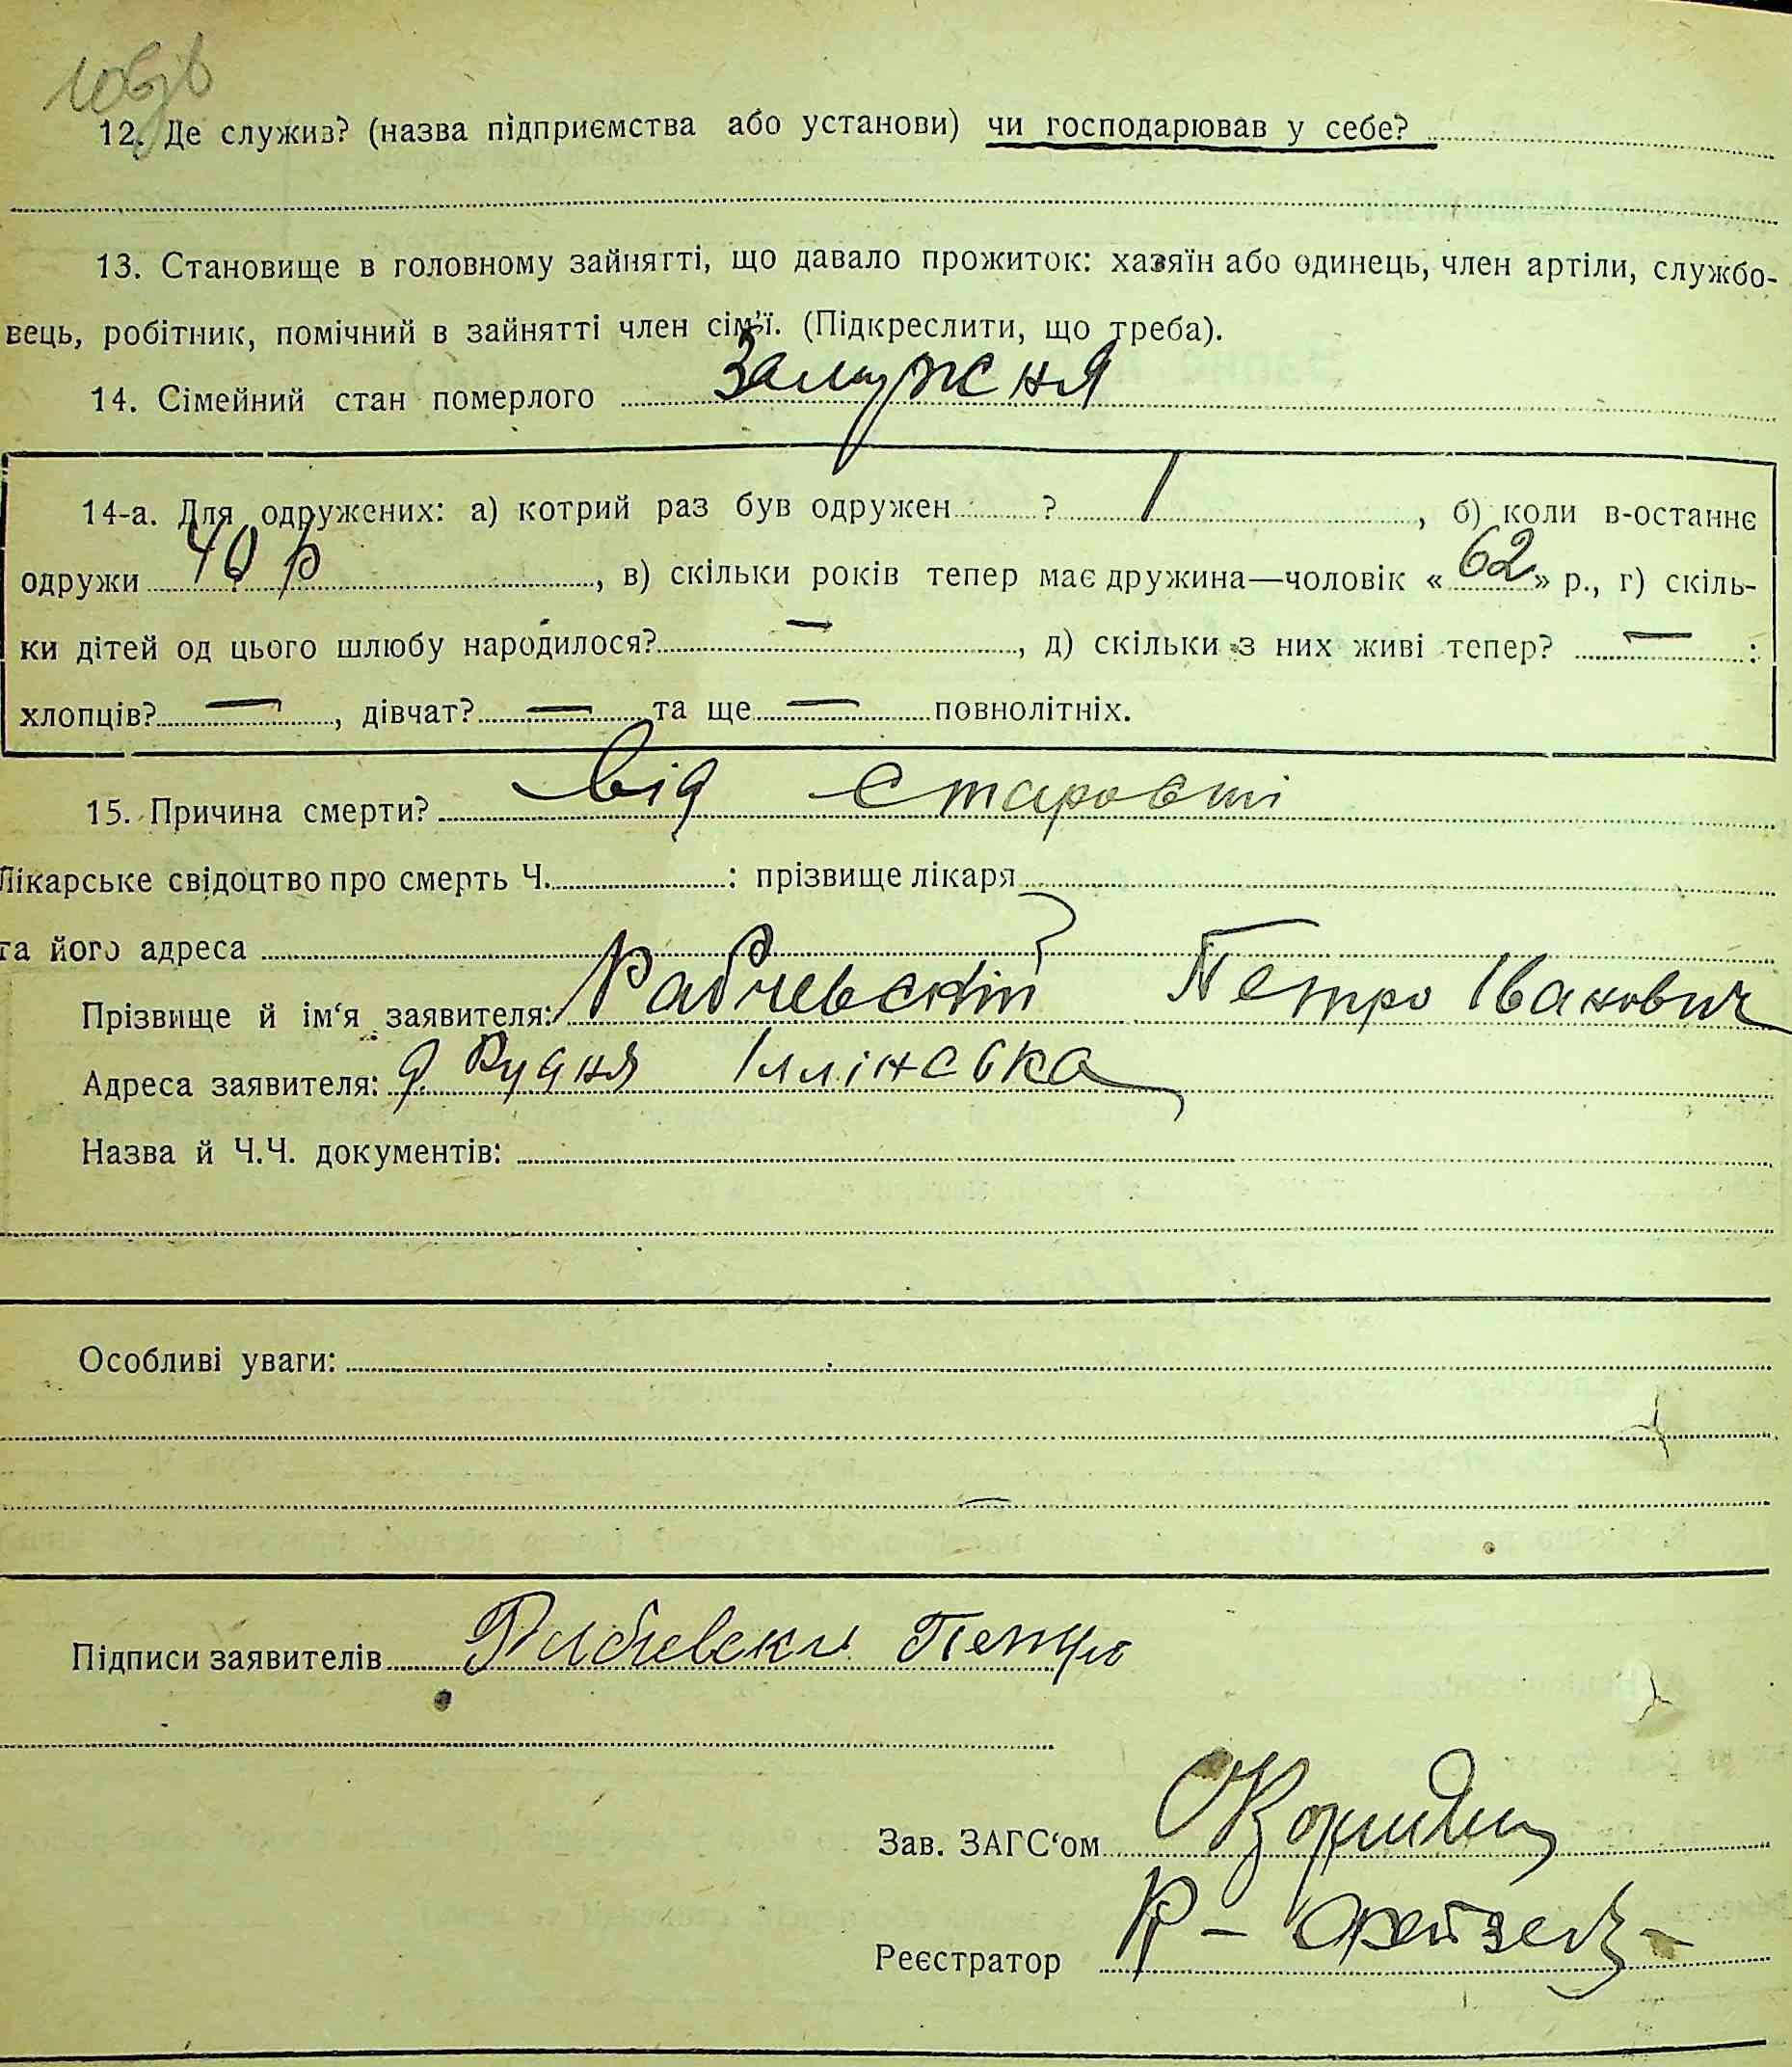 12. Де служив? (назва підприємства або установи) чи господарював у себе?
13. Становище в головному зайнятті, що давало прожиток: хазяїн або одинець, член артіли, службо-
вець, робітник, помічний в зайнятті член сім'ї. (Підкреслити, що треба).
14. Сімейний стан померлого Замужня
14-а. Для одружених: а) котрий раз був одружен ? 1, б) коли в-останнє
одружи 40 р, в) скільки років тепер має дружина—чоловік «62» р., г) скіль-
ки дітей од цього шлюбу народилося? —, д) скільки з них живі тепер? — :
хлопців? —, дівчат? — та ще — повнолітніх.
15. Причина смерти? від старості
Лікарське свідоцтво про смерть Ч. : прізвище лікаря
та його адреса
Прізвище й ім'я заявителя: Рабчевский Петро Іванович
Адреса заявителя: д. Рудня Іллінська
Назва й Ч.Ч. документів:
Особливі уваги:
Підписи заявителів Рабчевски Петро
Зав. ЗАГС'ом
Реєстратор